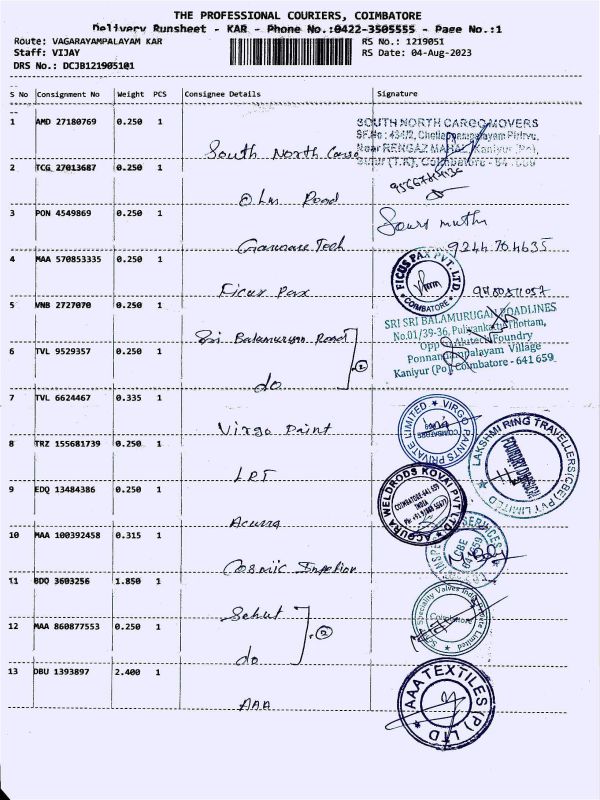 THE PROFESSIONAL COURIERS, COIMBATORE
Delivery Runsheet - KAR - Phone No.:0422-3505555 - Page No.:1
Route: VAGARAYAMPALAYAM KAR
RS No.: 1219051
Staff: VIJAY
RS Date: 04-Aug-2023
DRS No.: DCJB1219051@1
S No Consignment No Weight PCS Consignee Details Signature
1 AMD 27180769 0.250 1
South North Cargo
SOUTH NORTH CARGO MOVERS
2 TCG 27013687 0.250 1
Road
3 PON 4549869 0.250 1
Tech
9244704635
4 MAA 570853335 0.250 1
Ficux Pax
FICUS PAX PVT. LTD
COIMBATORE
5 VNB 2727070 0.250 1
Sri Balamurugan Road
SRI SRI BALAMURUGAN ROADLINES
No.01/39-36, Puliyankattu Thottam,
Opp Alutech Foundry
Ponnandampalayam Village
Kaniyur (Po) Coimbatore - 641 659
6 TVL 9529357 0.250 1
do
2
7 TVL 6624467 0.335 1
Virgo Paint
VIRGO PAINTS PRIVATE LIMITED
8 TRZ 155681739 0.250 1
LRT
LAKSHMI RING TRAVELLERS(CBE) PVT LIMITED
FOUNDRY DIVISION
9 EDQ 13484386 0.250 1
Acurra
ACQURA WELDRODS KOVAI PVT LTD
COIMBATORE 641 659
INDIA
10 MAA 100392458 0.315 1
Cosmic
SERVICES
CBE
641 659
11 BDO 3603256 1.850 1
Schut
Specialty Valves India Private Limited
Coimbatore
12 MAA 860877553 0.250 1
do
2
13 DBU 1393897 2.400 1
AAA
AAA TEXTILES (P) LTD